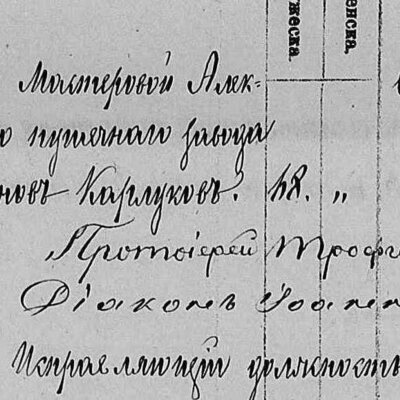 жеска.
енска.
Мастеровой Алек-
о пушечнаго завода
новъ Карлуковъ. 48. „
Протоіерей Троф
Діаконъ Іоанн
Исправляющій должность